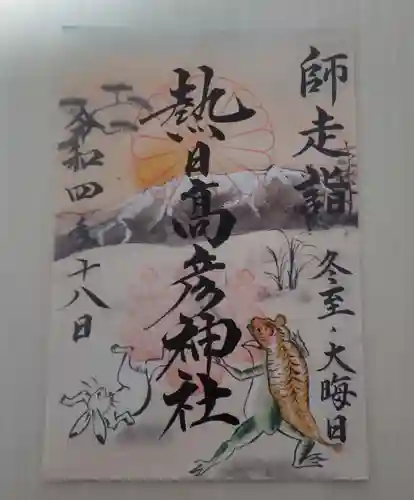 師走詣
冬至・大晦日
熱日高彦神社
令和四年
十二月
十八日